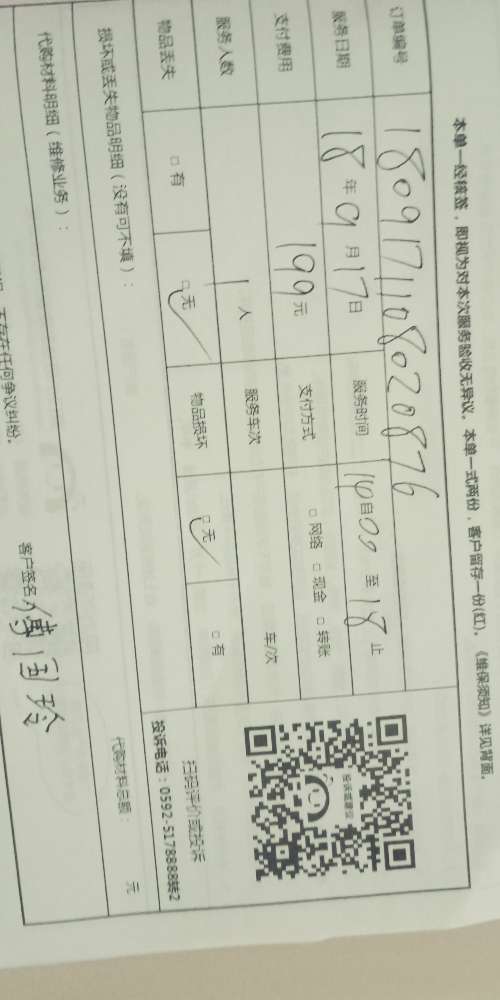 本单一经核签，即视为对本次服务验收无异议。本单一式两份，客户留存一份(红)。《维保须知》详见背面。
订单编号 180917110802087​6
服务日期 18 年 09 月 17 日 服务时间 14 自 00 至 18 止
支付费用 199 元 支付方式 □ 网络 □ 现金 □ 转账
服务人数 1 人 服务车次 车/次
物品丢失 □ 有 □ 无 物品损坏 □ 无 □ 有
损坏或丢失物品明细（没有可不填）：
投诉监督仪
扫码评价或投诉
投诉电话：0592-5178888转2
代购材料明细（维修业务）：
代购材料总额： 元
无存在任何争议纠纷。
客户签名